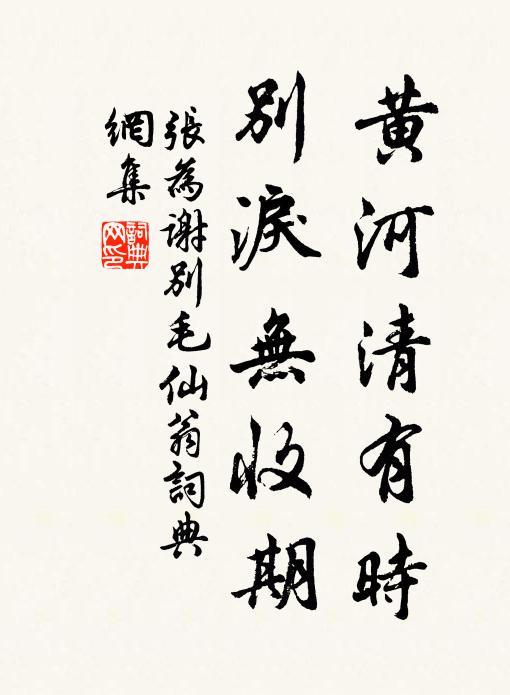 黃河清有時
別淚無收期
張為謝別毛仙翁詞典
網集
詞典
网印